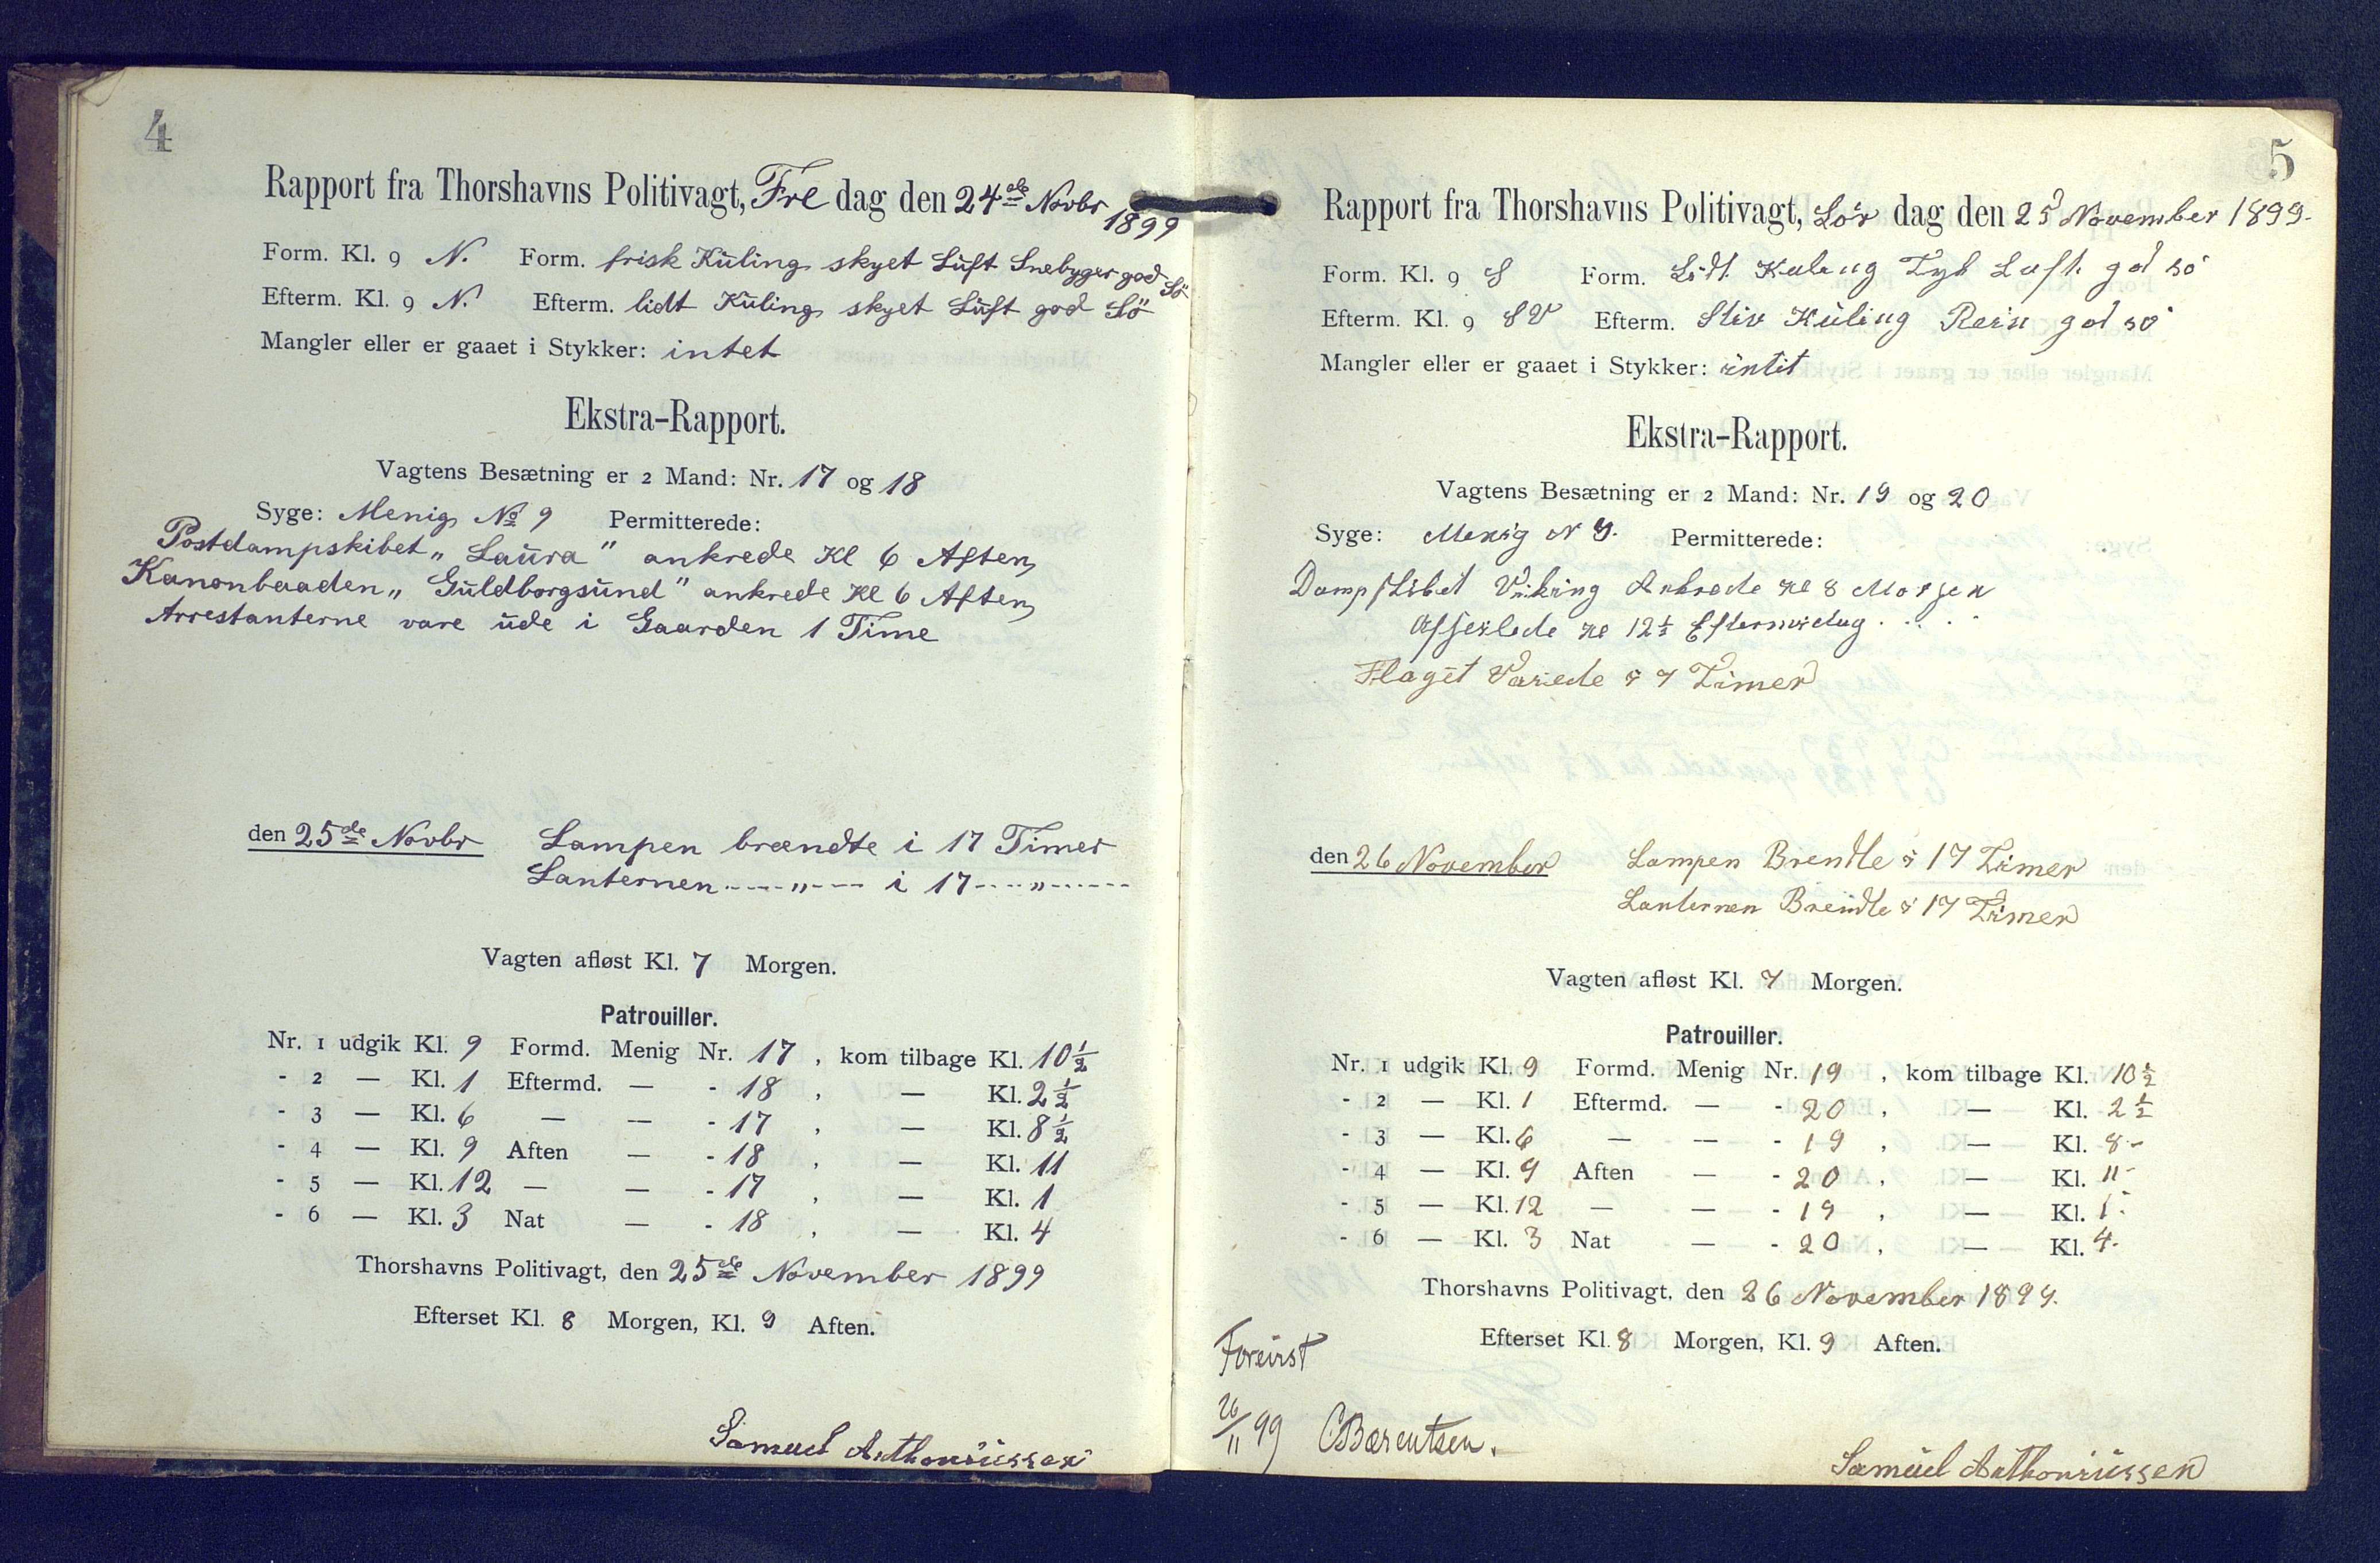 4
Rapport fra Thorshavns Politivagt, Fre dag den 24de Novbr 1899
Form. Kl. 9 N. Form. frisk Kuling skyet Luft Snebyger god Sö
Efterm. Kl. 9 N. Efterm. lidt Kuling skyet Luft god Sö
Mangler eller er gaaet i Stykker: intet
Ekstra-Rapport.
Vagtens Besætning er 2 Mand: Nr. 17 og 18
Syge: Menig No 9 Permitterede:
Postdampskibet „Laura" ankrede Kl 6 Aften,
Kanonbaaden „Guldborgsund" ankrede Kl 6 Aften,
Arrestanterne vare ude i Gaarden 1 Time
den 25de Novbr Lampen brændte i 17 Timer
Lanternen ----"--- i 17 ----"------
Vagten afløst Kl. 7 Morgen.
Patrouiller.
Nr. 1 udgik Kl. 9 Formd. Menig Nr. 17 , kom tilbage Kl. 10½
- 2 — Kl. 1 Eftermd. — - 18 , — Kl. 2½
- 3 — Kl. 6 — — - 17 , — Kl. 8½
- 4 — Kl. 9 Aften — - 18 , — Kl. 11
- 5 — Kl. 12 — — - 17 , — Kl. 1
- 6 — Kl. 3 Nat — - 18 , — Kl. 4
Thorshavns Politivagt, den 25de November 1899
Efterset Kl. 8 Morgen, Kl. 9 Aften.
Samuel Anthoniussen
5
Rapport fra Thorshavns Politivagt, Lör dag den 25 November 1899.
Form. Kl. 9 S Form. Lidt Kuling Tyk Luft god sö
Efterm. Kl. 9 SV Efterm. Stiv Kuling Rein god sö
Mangler eller er gaaet i Stykker: intit
Ekstra-Rapport.
Vagtens Besætning er 2 Mand: Nr. 19 og 20
Syge: Menig N 9. Permitterede:
Dampskibet Viking Ankrede Kl 8 Morgen
Afseilede Kl 12½ Eftermidag . . . .
Flaget Variede i 7 Timer
den 26 November Lampen Brendte i 17 Timer
Lanternen Brendte i 17 Timer
Vagten afløst Kl. 7 Morgen.
Patrouiller.
Nr. 1 udgik Kl. 9 Formd. Menig Nr. 19 , kom tilbage Kl. 10½
- 2 — Kl. 1 Eftermd. — - 20 , — Kl. 2½
- 3 — Kl. 6 — — - 19 , — Kl. 8-
- 4 — Kl. 9 Aften — - 20 , — Kl. 11-
- 5 — Kl. 12 — — - 19 , — Kl. 1-
- 6 — Kl. 3 Nat — - 20 , — Kl. 4-
Thorshavns Politivagt, den 26 November 1899.
Efterset Kl. 8 Morgen, Kl. 9 Aften.
Forevist
26/11 99 CBærentsen.
Samuel Anthoniussen